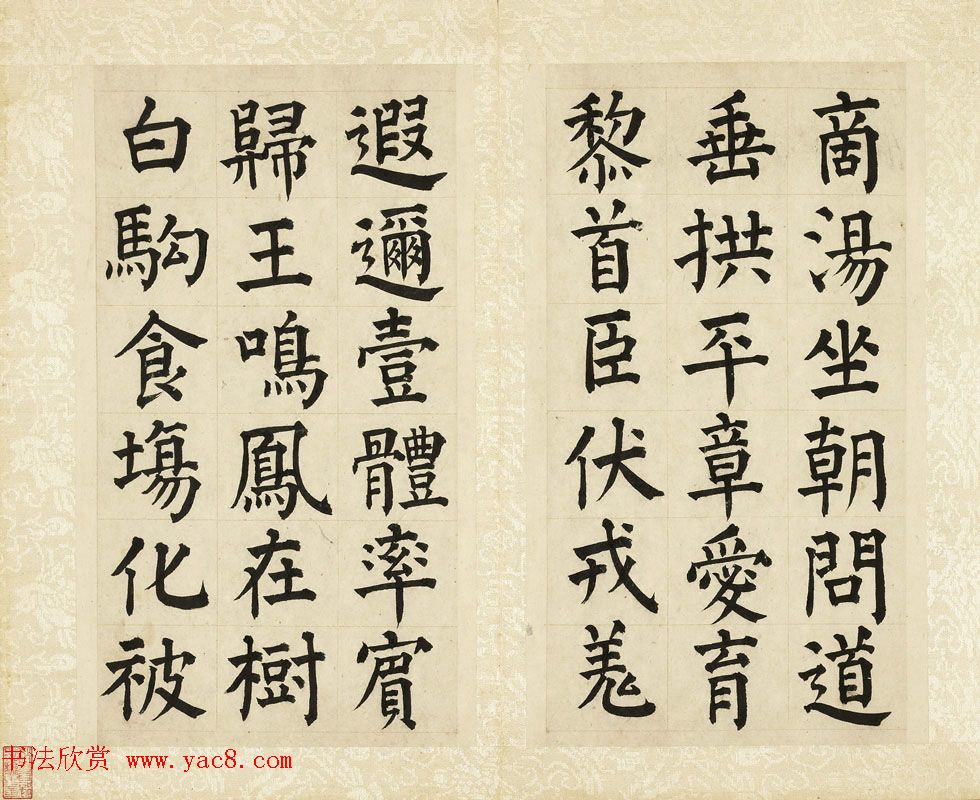 商湯坐朝問道
垂拱平章愛育
黎首臣伏戎羗
遐邇壹體率賓
歸王鳴鳳在樹
白駒食場化被
书法欣赏 www.yac8.com